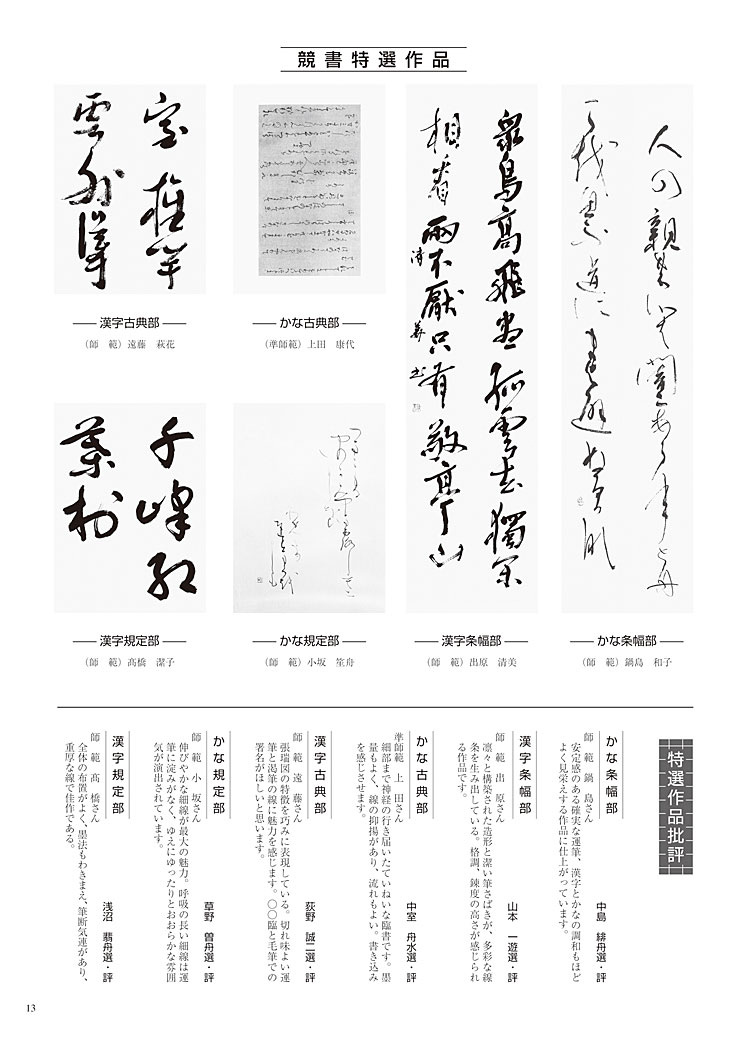 競書特選作品
人の親
衆鳥高飛盡孤雲去獨閑
相看兩不厭只有敬亭山
千峰紅
葉村
漢字古典部
(師　範) 遠藤　萩花
かな古典部
(準師範) 上田　康代
漢字規定部
(師　範) 髙橋　潔子
かな規定部
(師　範) 小坂　笙舟
漢字条幅部
(師　範) 出原　清美
かな条幅部
(師　範) 鍋島　和子
特選作品批評
かな条幅部　中島　緋舟選・評
師　範　鍋　島さん
安定感のある確実な運筆、漢字とかなの調和もほど
よく見栄えする作品に仕上がっています。
漢字条幅部　山本　一遊選・評
師　範　出　原さん
凛々と構築された造形と潔い筆さばきが、多彩な線
条を生み出している。格調、錬度の高さが感じられ
る作品です。
かな古典部　中室　舟水選・評
準師範　上　田さん
細部まで神経の行き届いたていねいな臨書です。墨
量もよく、線の抑揚があり、流れもよい。書き込み
を感じさせます。
漢字古典部　荻野　誠二選・評
師　範　遠　藤さん
張瑞図の特徴を巧みに表現している。切れ味よい運
筆と渇筆の線に魅力を感じます。〇〇臨と毛筆での
署名がほしいと思います。
かな規定部　草野　曽舟選・評
師　範　小　坂さん
伸びやかな細線が最大の魅力。呼吸の長い細線は運
筆に淀みがなく、ゆえにゆったりとおおらかな雰囲
気が演出されています。
漢字規定部　浅沼　翡舟選・評
師　範　髙　橋さん
全体の布置がよく、墨法もわきまえ、筆断気連があり、
重厚な線で佳作である。
13